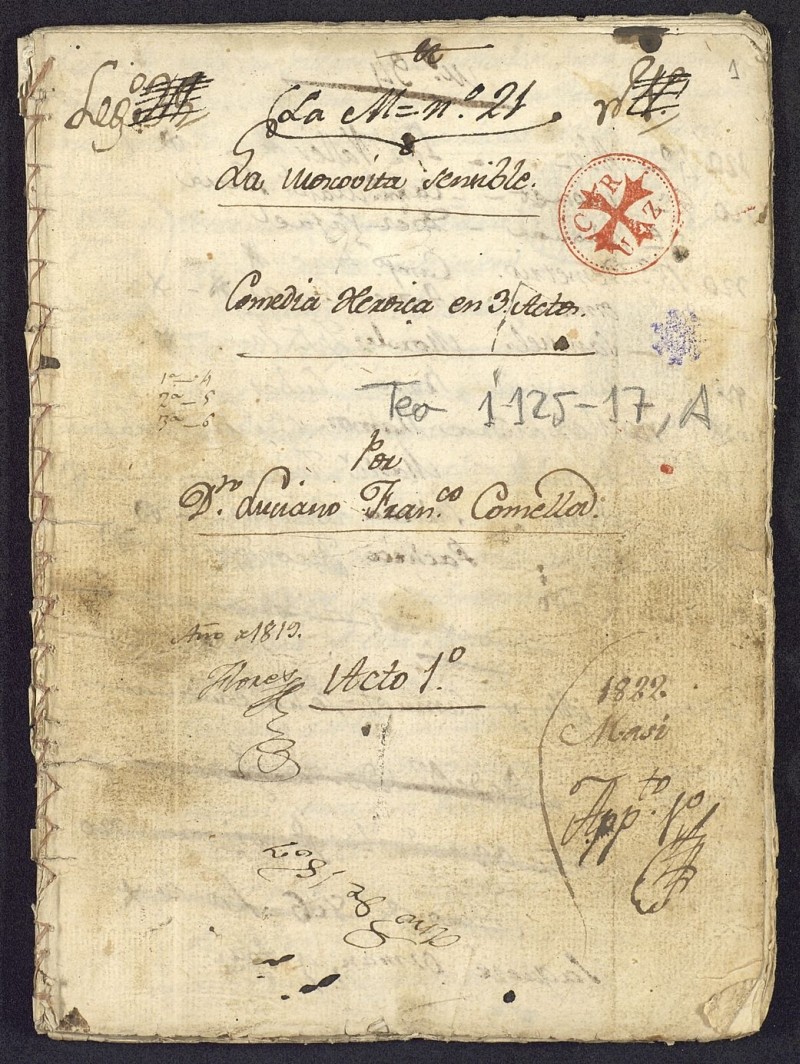 1
Leg.º
La M= n.º 21
La Moscovita sensible.
CRUZ
Comedia Heroica en 3 Actos.
1ª_4
2ª_5
3ª_6
Teo 1-125-17, A
Por
D.n Luciano Fran.co Comella.
Año 1819.
Flores
Acto 1º
1822.
Masi
App.to 1º